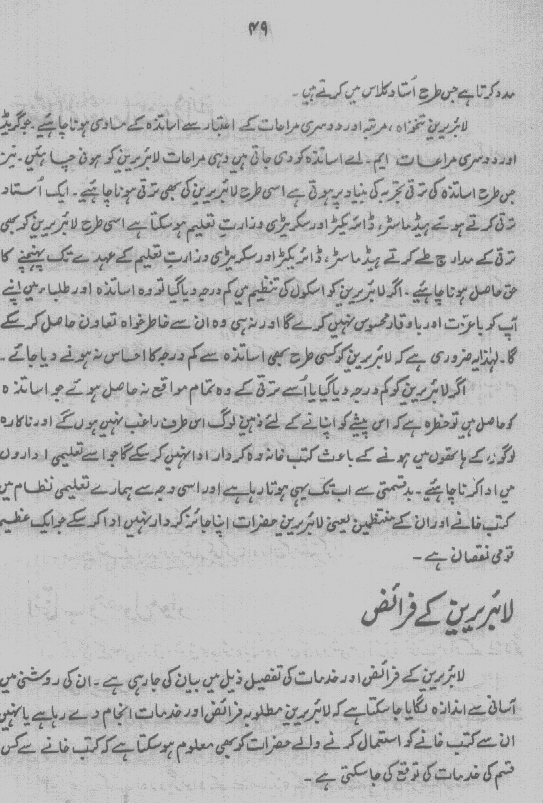 ۴۹
مدد کرتا ہے جس طرح اُستاد کلاس میں کرتے ہیں۔
لائبریرین تنخواہ، مرتبہ اور دوسری مراعات کے اعتبار سے اساتذہ کے مساوی ہونا چاہیئے۔ جو گریڈ
اور دوسری مراعات ایم۔ اے اساتذہ کو دی جاتی ہیں وہی مراعات لائبریرین کو ہونی چاہئیں۔ نیز
جس طرح اساتذہ کی ترقی تجربہ کی بنیاد پر ہوتی ہے اسی طرح لائبریرین کی بھی ترقی ہونا چاہئیے۔ ایک اُستاد
ترقی کرتے ہوئے ہیڈ ماسٹر، ڈائریکٹر اور سکریٹری وزارت تعلیم ہو سکتا ہے اسی طرح لائبریرین کو بھی
ترقی کے مدارج طے کرتے ہیڈ ماسٹر، ڈائریکٹر اور سکریٹری وزارت تعلیم کے عہدے تک پہنچنے کا
حق حاصل ہونا چاہئیے۔ اگر لائبریرین کو اسکول کی تنظیم میں کم درجہ دیا گیا تو وہ اساتذہ اور طلباء میں اپنے
آپ کو باعزت اور باوقار محسوس نہیں کرے گا اور نہ ہی وہ ان سے خاطر خواہ تعاون حاصل کر سکے
گا۔ لہٰذا یہ ضروری ہے کہ لائبریرین کو کسی طرح بھی اساتذہ سے کم درجہ کا احساس نہ ہونے دیا جائے۔
اگر لائبریرین کو کم درجہ دیا گیا یا اُسے ترقی کے وہ تمام مواقع نہ حاصل ہوئے جو اساتذہ
کو حاصل ہیں تو خطرہ ہے کہ اس پیشے کو اپنانے کے لئے ذہین لوگ اس طرف راغب نہیں ہوں گے اور ناکارہ
لوگوں کے ہاتھوں میں ہونے کے باعث کتب خانہ وہ کردار ادا نہیں کر سکے گا جو اسے تعلیمی اداروں
میں ادا کرنا چاہئیے۔ بدقسمتی سے اب تک یہی ہوتا رہا ہے اور اسی وجہ سے ہمارے تعلیمی نظام میں
کتب خانے اور ان کے منتظمین یعنی لائبریرین حضرات اپنا جائز کردار نہیں ادا کر سکے جو ایک عظیم
قومی نقصان ہے۔
لائبریرین کے فرائض
لائبریرین کے فرائض اور خدمات کی تفصیل ذیل میں بیان کی جا رہی ہے۔ ان کی روشنی میں
آسانی سے اندازہ لگایا جا سکتا ہے کہ لائبریرین مطلوبہ فرائض اور خدمات انجام دے رہا ہے یا نہیں
ان سے کتب خانے کو استعمال کرنے والے حضرات کو بھی معلوم ہو سکتا ہے کہ کتب خانے سے کس
قسم کی خدمات کی توقع کی جا سکتی ہے۔